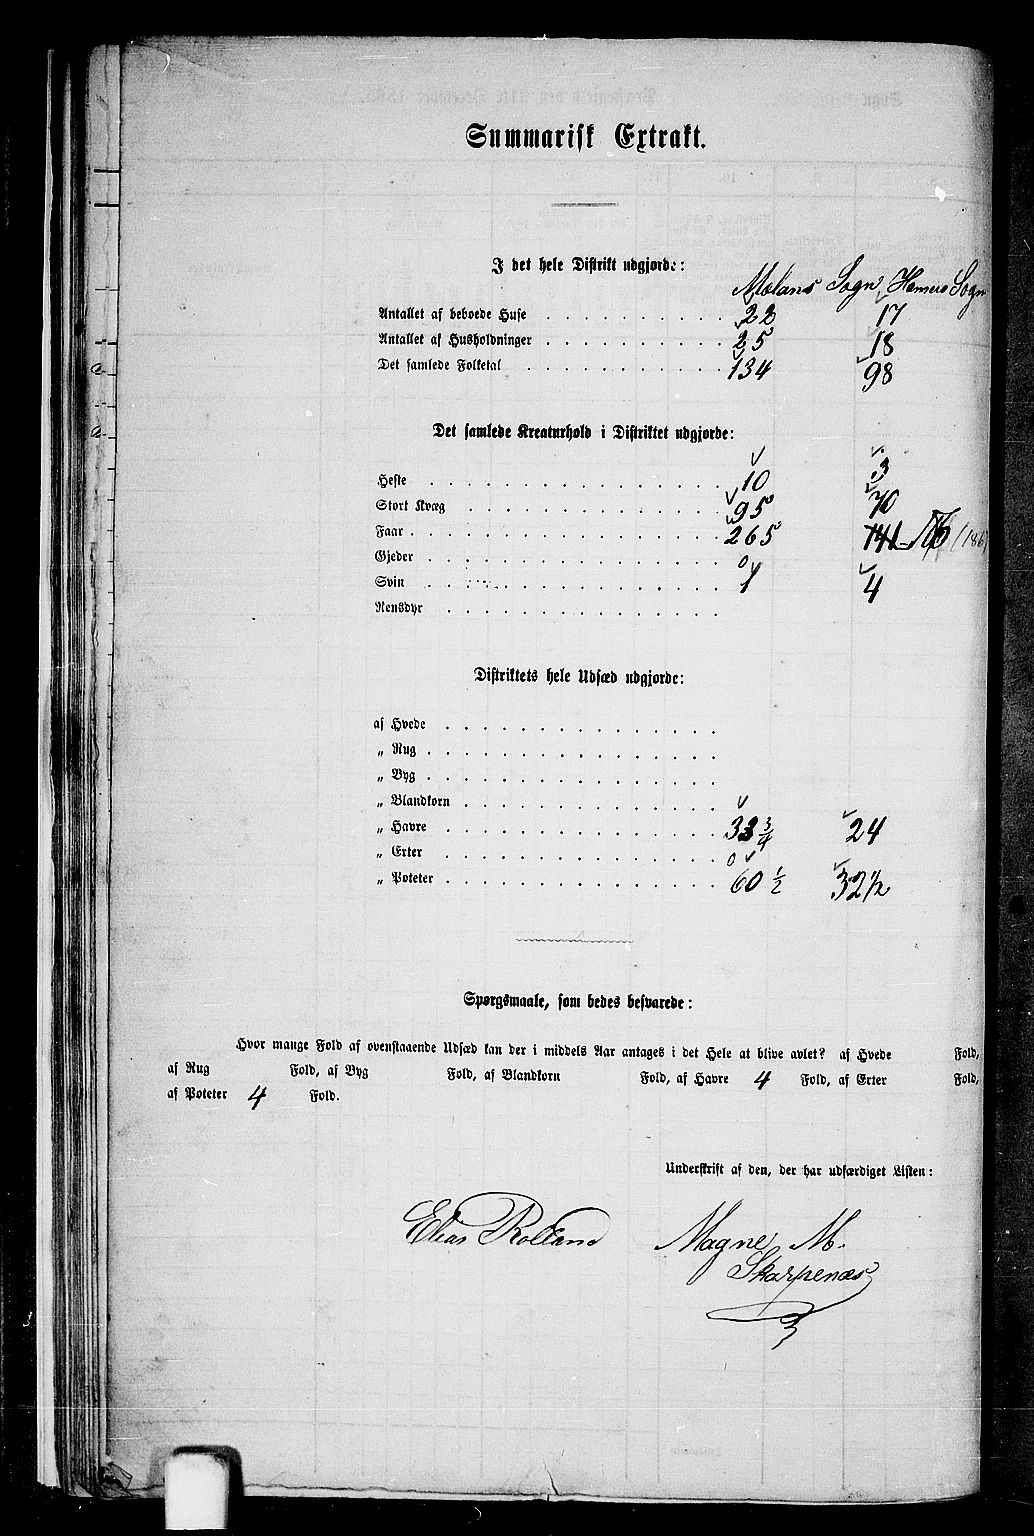 Summarisk Extrakt.
I det hele Distrikt udgjorde:
Molans Sogn Hamers Sogn
Antallet af beboede Huse 22 17
Antallet af Husholdninger 25 18
Det samlede Folketal 134 98
Det samlede Kreaturhold i Distriktet udgjorde:
Heste 10 3
Stort Kvæg 95 70
Faar 265 141 (186)
Gjeder 0
Svin 1 4
Rensdyr
Distriktets hele Udsæd udgjorde:
af Hvede
„ Rug
„ Byg
„ Blandkorn
„ Havre 33 3/4 24
„ Erter 0
„ Poteter 60 1/2 32 1/2
Spørgsmaale, som bedes besvarede:
Hvor mange Fold af ovenstaaende Udsæd kan der i middels Aar antages i det Hele at blive avlet? af Hvede Fold,
af Rug Fold, af Byg Fold, af Blandkorn Fold, af Havre 4 Fold, af Erter Fold,
af Poteter 4 Fold.
Underskrift af den, der har udfærdiget Listen:
Elias Rolland Magne M.
Skarpenæs